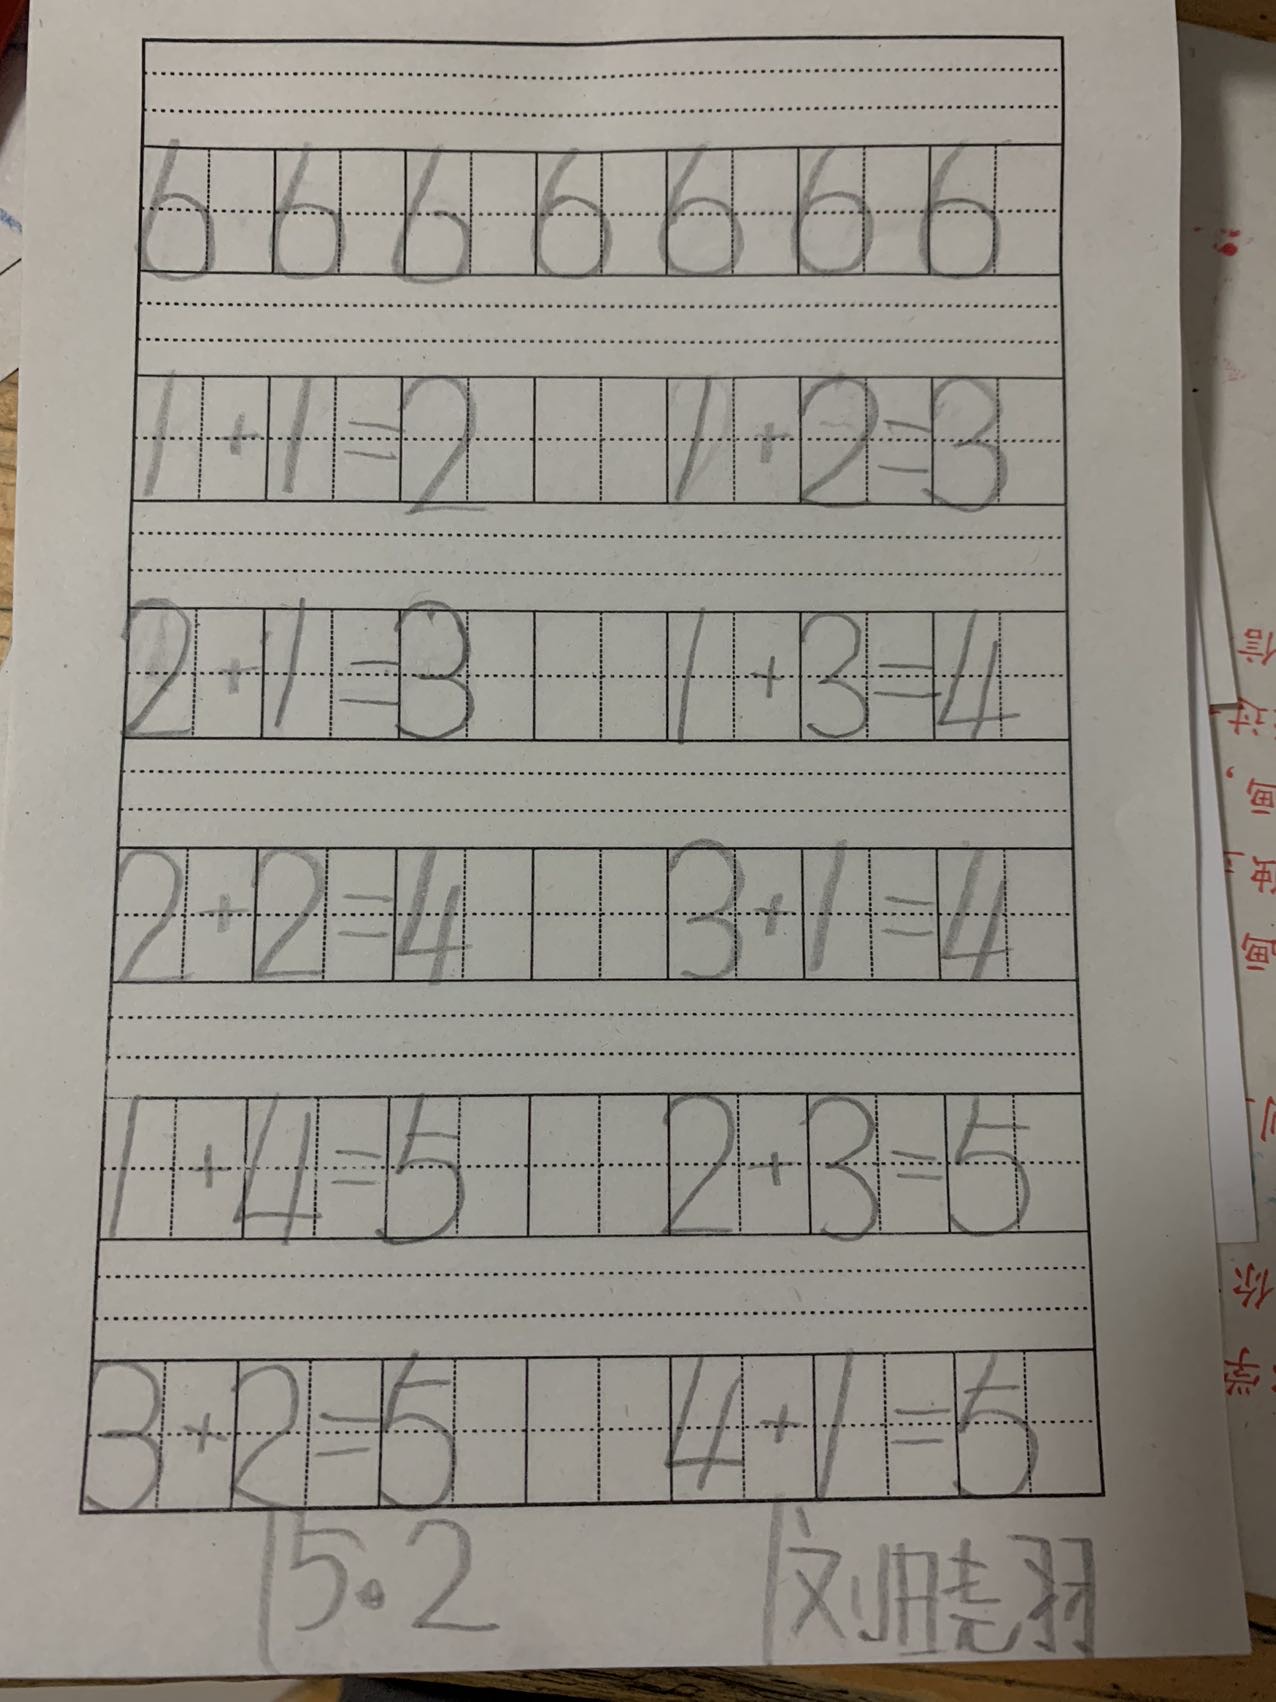 6 6 6 6 6 6 6
1+1=2 1+2=3
2+1=3 1+3=4
2+2=4 3+1=4
1+4=5 2+3=5
3+2=5 4+1=5
5.2 刘晓羽
信
过
画，
画
你
学